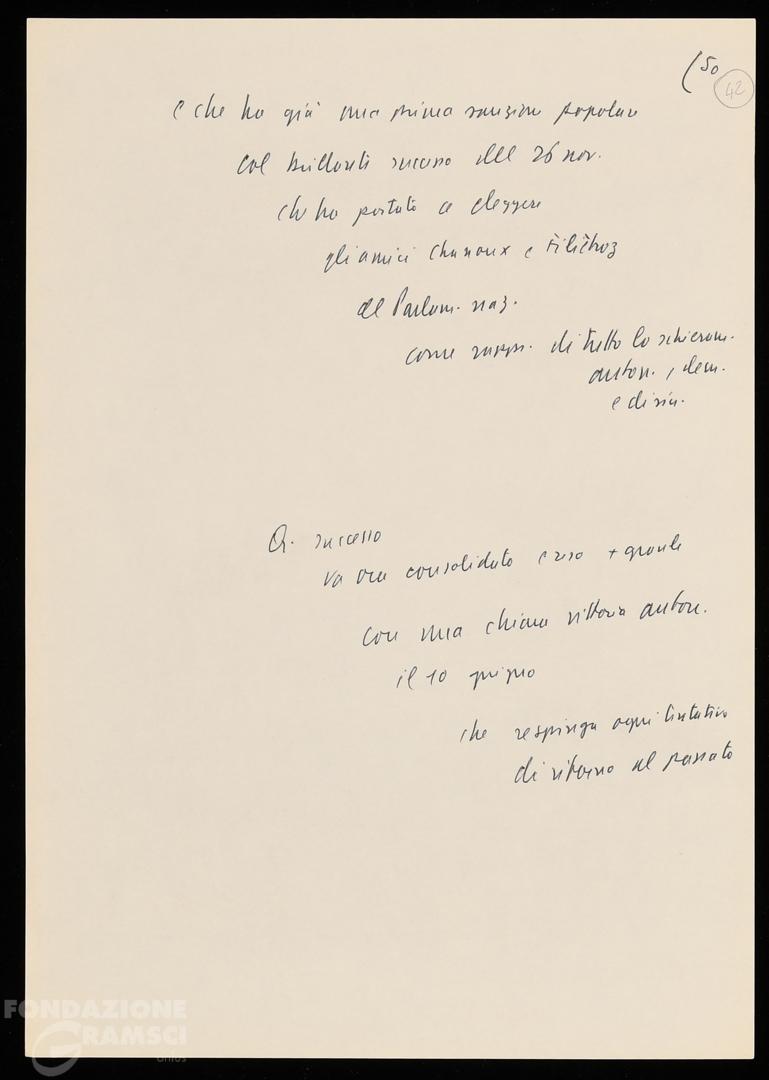 (50
42
e che ha già una prima sanzione popolare
col brillante successo del 26 nov.
che ha portato a eleggere
gli amici Chanoux e Fillietroz
al Parlam. naz.
come rappr. di tutto lo schieram.
auton., dem.
e di sin.
Q. successo
va ora consolidato e reso + grande
con una chiara vittoria auton.
il 10 giugno
che respinga ogni tentativo
di ritorno al passato
FONDAZIONE
GRAMSCI
onlus